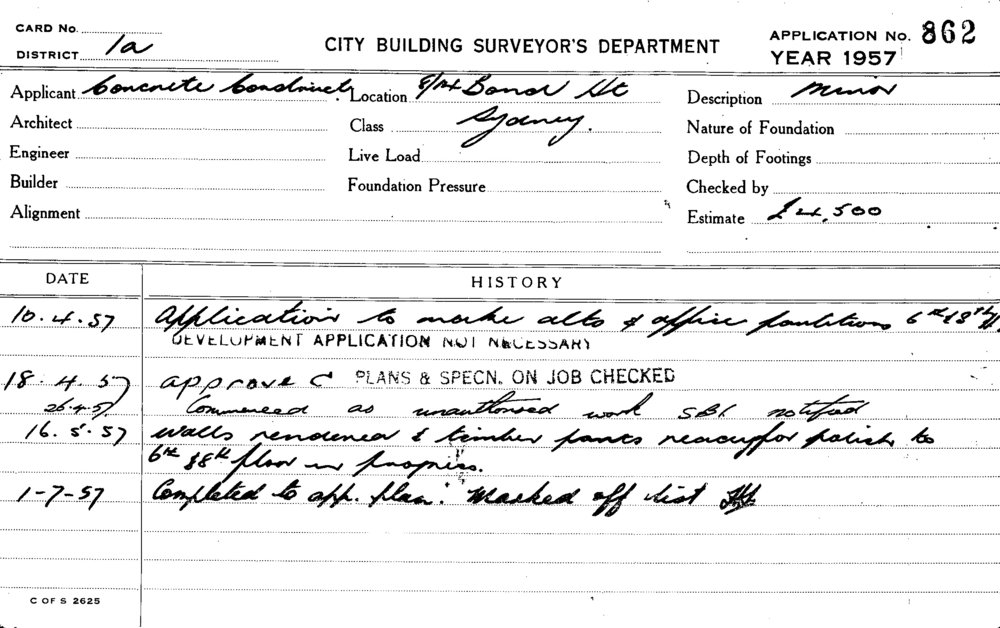 CARD No.
DISTRICT 1a
CITY BUILDING SURVEYOR'S DEPARTMENT
APPLICATION No. 862
YEAR 1957
Applicant Concrete Location 8/14 Bond St
Architect
Class Sydney.
Engineer
Live Load
Builder
Foundation Pressure
Alignment
Description Minor
Nature of Foundation
Depth of Footings
Checked by
Estimate £4,500
DATE HISTORY
10.4.57 Application to make alts & office partitions 6th & 8th fl.
DEVELOPMENT APPLICATION NOT NECESSARY
18.4.57 approved PLANS & SPECN. ON JOB CHECKED
26.4.57 Commenced as unauthorised work SBI notified
16.5.57 walls rendered & timber ready for polish to
6th & 8th floor in progress.
1-7-57 Completed to app. plan. Marked off list
C OF S 2625